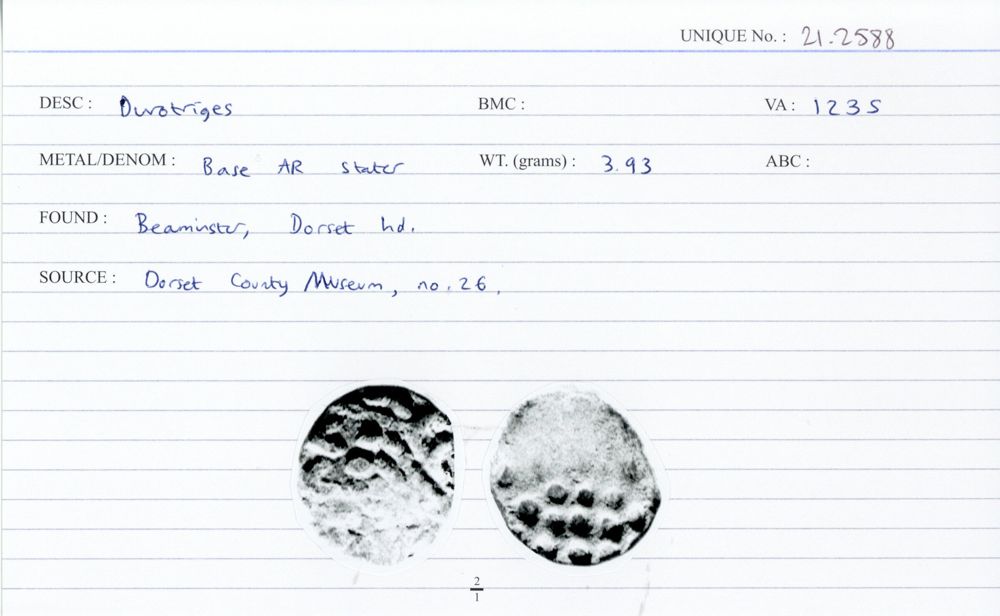 UNIQUE No. : 21.2588
DESC : Durotriges BMC : VA : 1235
METAL/DENOM : Base AR stater WT. (grams) : 3.93 ABC :
FOUND : Beaminster, Dorset hd.
SOURCE : Dorset County Museum, no. 26.
2
1